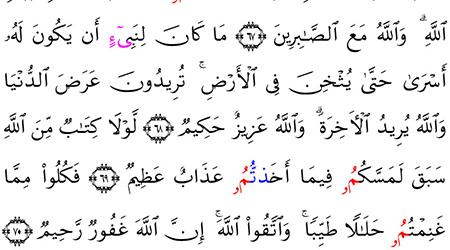 ٱللَّهِ ۗ وَٱللَّهُ مَعَ ٱلصَّـٰبِرِينَ ﴿٦٧﴾ مَا كَانَ لِنَبِىٓءٍ أَن يَكُونَ لَهُۥ
أَسْرَىٰ حَتَّىٰ يُثْخِنَ فِى ٱلْأَرْضِ ۚ تُرِيدُونَ عَرَضَ ٱلدُّنْيَا
وَٱللَّهُ يُرِيدُ ٱلْأَخِرَةَ ۗ وَٱللَّهُ عَزِيزٌ حَكِيمٌ ﴿٦٨﴾ لَّوْلَا كِتَـٰبٌ مِّنَ ٱللَّهِ
سَبَقَ لَمَسَّكُمُۥ فِيمَا أَخَذتُّمُۥ عَذَابٌ عَظِيمٌ ﴿٦٩﴾ فَكُلُوا۟ مِمَّا
غَنِمْتُمُۥ حَلَـٰلًا طَيِّبًا ۚ وَٱتَّقُوا۟ ٱللَّهَ ۚ إِنَّ ٱللَّهَ غَفُورٌ رَّحِيمٌ ﴿٧٠﴾